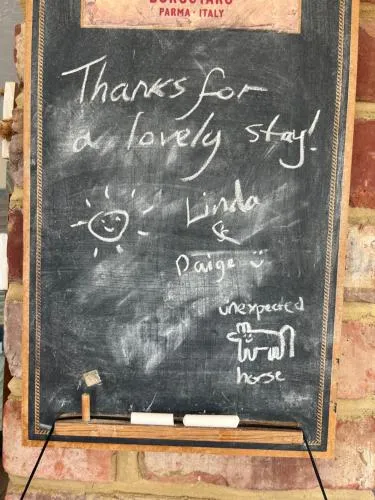 BORGOTARO
PARMA · ITALY
Thanks for
a lovely stay!
Linda
&
Paige
unexpected
horse